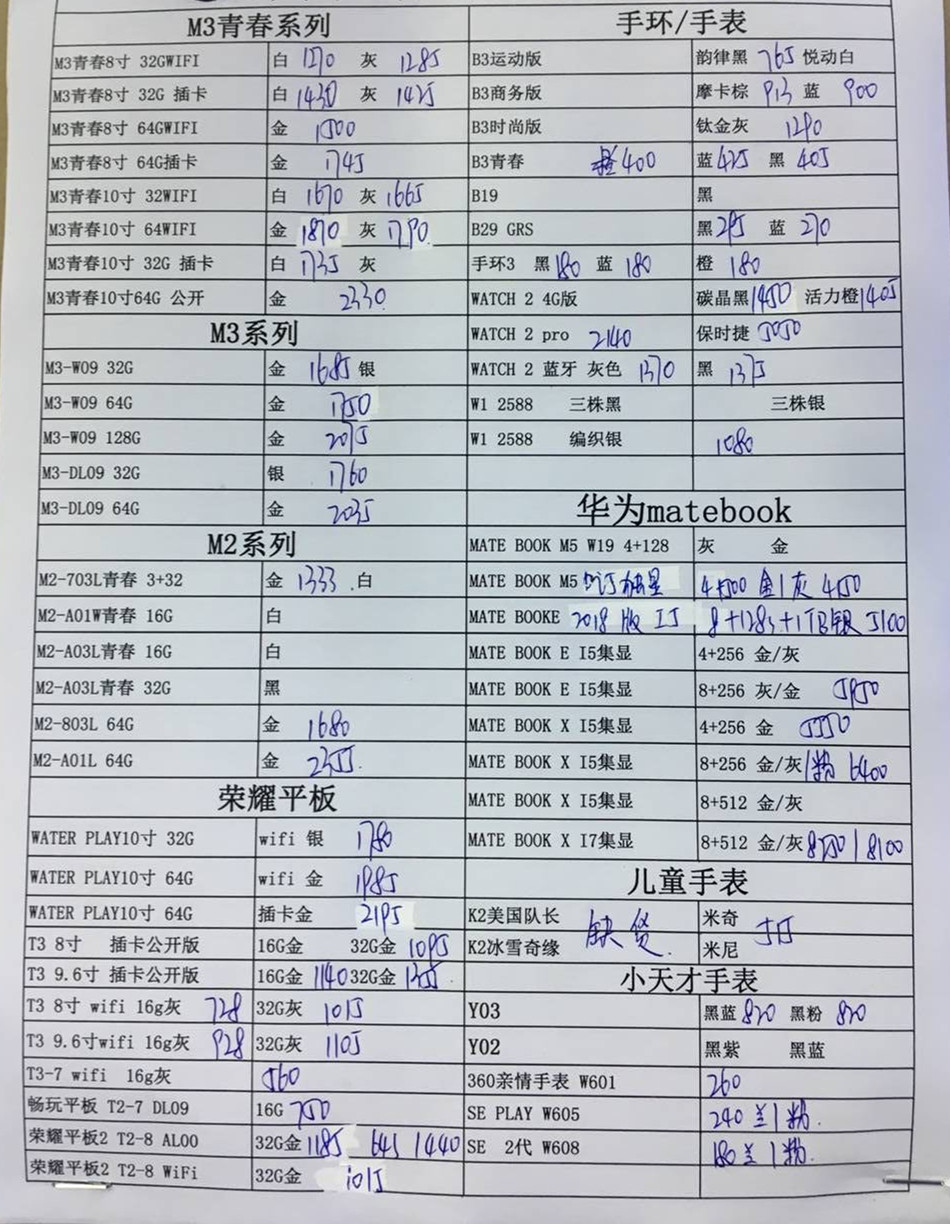 M3青春系列
M3青春8寸 32GWIFI 白 1270 灰 1285
M3青春8寸 32G 插卡 白 1430 灰 1425
M3青春8寸 64GWIFI 金 1500
M3青春8寸 64G插卡 金 1745
M3青春10寸 32WIFI 白 1670 灰 1665
M3青春10寸 64WIFI 金 1870 灰 1790
M3青春10寸 32G 插卡 白 1735 灰
M3青春10寸64G 公开 金 2330
M3系列
M3-W09 32G 金 1685 银
M3-W09 64G 金 1750
M3-W09 128G 金
M3-DL09 32G 银 1760
M3-DL09 64G 金 2035
M2系列
M2-703L青春 3+32 金 1333 .白
M2-A01W青春 16G 白
M2-A03L青春 16G 白
M2-A03L青春 32G 黑
M2-803L 64G 金 1680
M2-A01L 64G 金 2355
荣耀平板
WATER PLAY10寸 32G wifi 银 1780
WATER PLAY10寸 64G wifi 金 1985
WATER PLAY10寸 64G 插卡金 2195
T3 8寸 插卡公开版 16G金 32G金 1095
T3 9.6寸 插卡公开版 16G金 1140 32G金
T3 8寸 wifi 16g灰 728 32G灰 1015
T3 9.6寸wifi 16g灰 928 32G灰 1105
T3-7 wifi 16g灰 560
畅玩平板 T2-7 DL09 16G 750
荣耀平板2 T2-8 AL00 32G金 1185 645 1440
荣耀平板2 T2-8 WiFi 32G金 1015
手环/手表
B3运动版 韵律黑 765 悦动白
B3商务版 摩卡棕 913 蓝 900
B3时尚版 钛金灰 1290
B3青春 橙400 蓝 425 黑 405
B19 黑
B29 GRS 黑 295 蓝 270
手环3 黑 180 蓝 180 橙 180
WATCH 2 4G版 碳晶黑1450 活力橙1405
WATCH 2 pro 2140 保时捷 5050
WATCH 2 蓝牙 灰色 1370 黑 1375
W1 2588 三株黑 三株银
W1 2588 编织银 1080
华为matebook
MATE BOOK M5 W19 4+128 灰 金
MATE BOOK M5 金/灰 4150
MATE BOOKE 2018版 I5 8+128s+1TB银 5100
MATE BOOK E I5集显 4+256 金/灰
MATE BOOK E I5集显 8+256 灰/金 5950
MATE BOOK X I5集显 4+256 金 5550
MATE BOOK X I5集显 8+256 金/灰/粉 6400
MATE BOOK X I5集显 8+512 金/灰
MATE BOOK X I7集显 8+512 金/灰 8250/8100
儿童手表
K2美国队长 缺货 米奇
K2冰雪奇缘 米尼
小天才手表
Y03 黑蓝 820 黑粉 820
Y02 黑紫 黑蓝
360亲情手表 W601 260
SE PLAY W605 240 兰/粉.
SE 2代 W608 180 兰/粉.